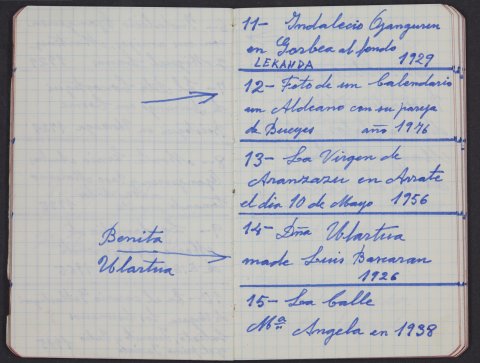 Benita
Ulartua
11- Indalecio Ojanguren
en Gorbea al fondo
LEKANDA 1929
12- Foto de un Calendario
un Aldeano con su pareja
de Bueyes año 1976
13- La Virgen de
Aranzazu en Arrate
el dia 10 de Mayo 1956
14- Dña Ulartua
madre Luis Bascaran
1926
15- La Calle
Mª Angela en 1938